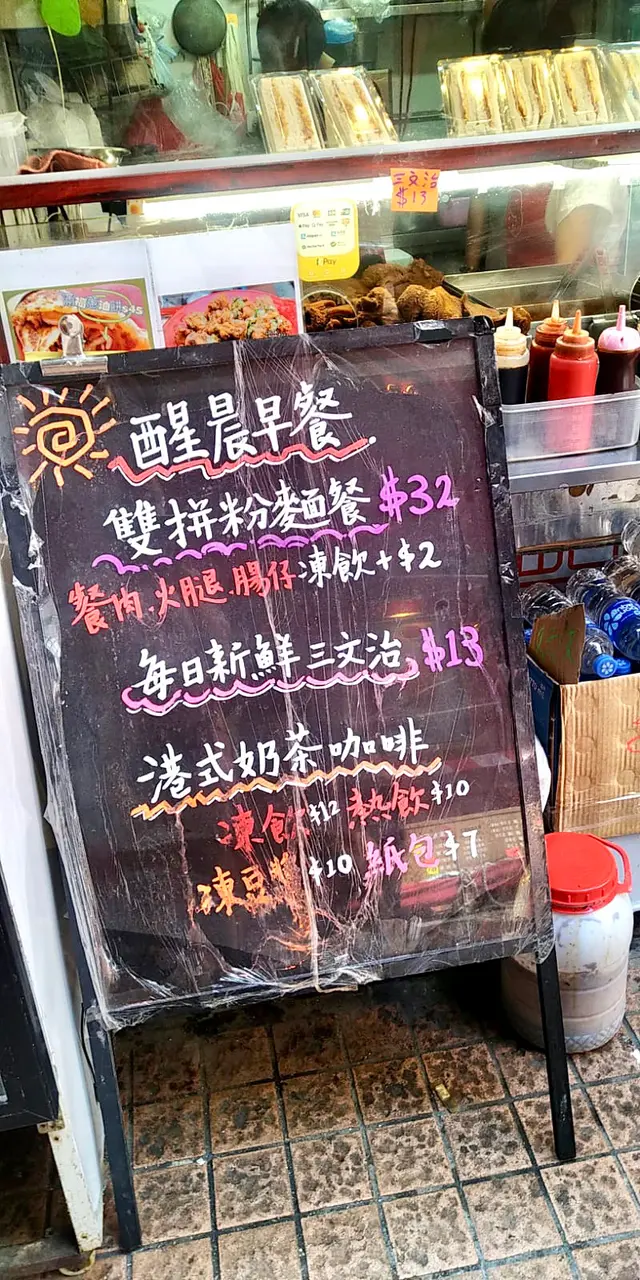 三文治
$13
VISA
Pay
$45
醒晨早餐.
雙拼粉麵餐 $32
餐肉.火腿.腸仔 凍飲+$2
每日新鮮三文治 $13
港式奶茶咖啡
凍飲 $12 熱飲 $10
凍豆漿 $10 紙包 $7